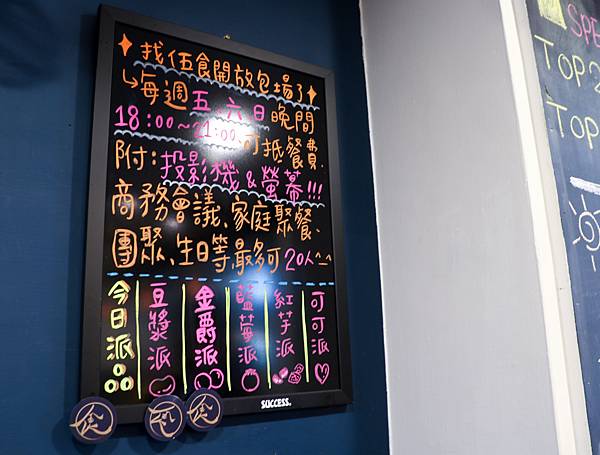 找伍食開放包場了
每週五.六.日晚間
18:00~21:00 可抵餐費.
附:投影機 & 螢幕!!!
商務會議、家庭聚餐、
團聚、生日等,最多可20人^_^
今日派
豆漿派
金爵派
藍莓派
紅芋派
可可派
SUCCESS.
食
食
SPE
TOP 2
TOP